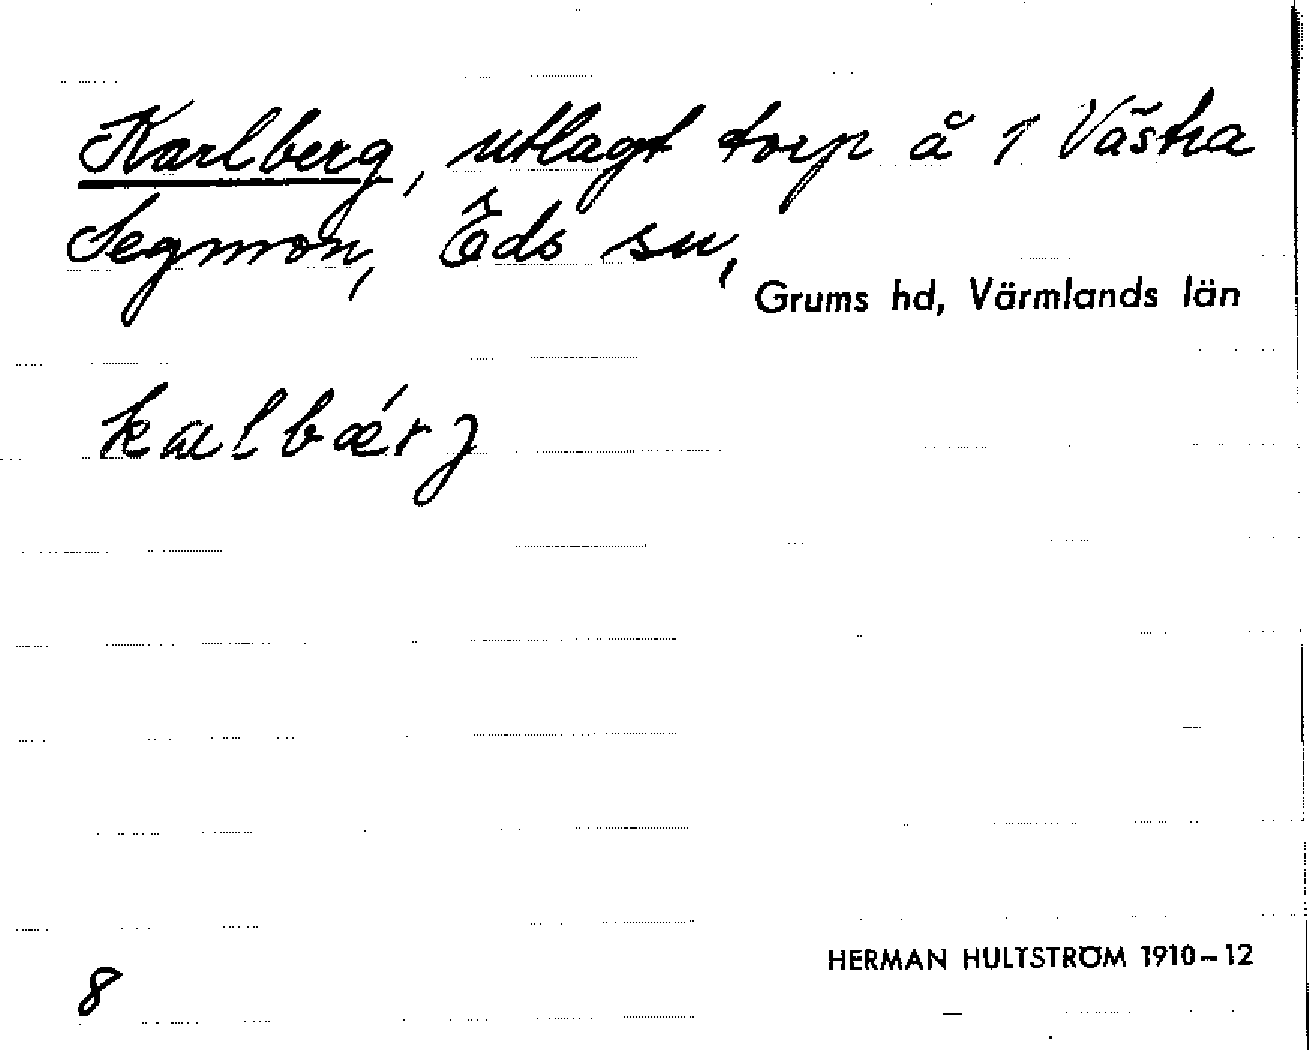 Karlberg, utlagt torp å 1 Västra
Segmon, Eds sn,
Grums hd, Värmlands län
kalbǽrj
8
HERMAN HULTSTRÖM 1910–12